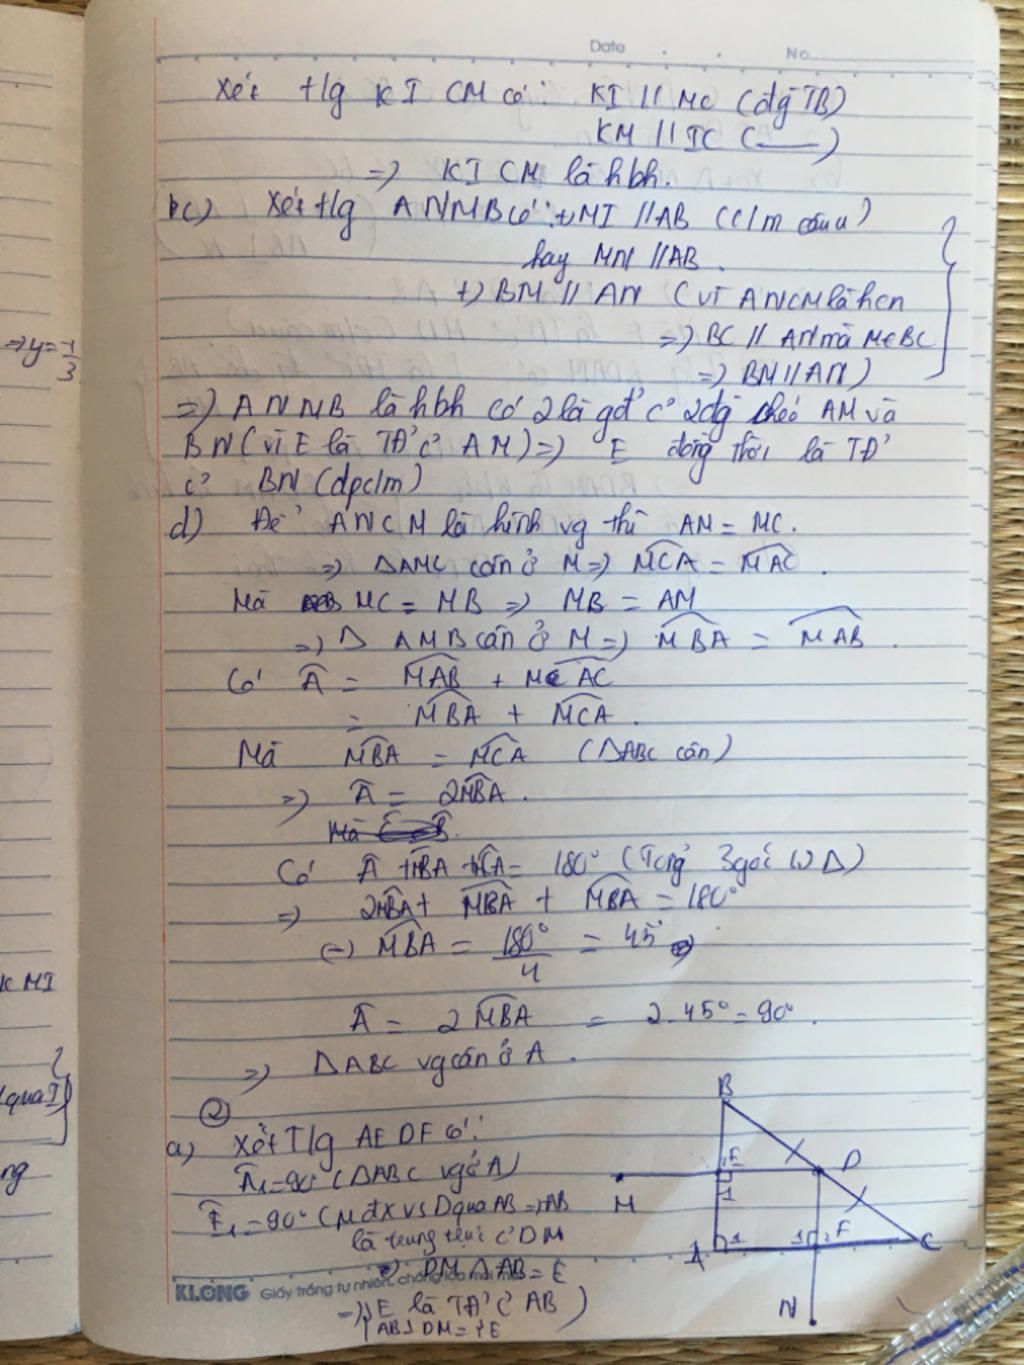 Date . . No.
Xét t/g KICM có: KI // MC (đg TB)
KM // IC ( —— )
=> KICM là hbh.
c) Xét t/g ANMB có: +, MI // AB (c/m câu a)
hay MN // AB.
+) BM // AN (vì ANCM là hcn
=> BC // AN mà M∈BC
=> BM // AN)
=> ANMB là hbh có 2 là gđ' c' 2 đg chéo AM và
BN (vì E là TĐ' c' AM) => E đồng thời là TĐ'
c' BN (đpc/m)
d) Để ANCM là hình vg thì AM = MC.
=> ΔAMC cân ở M => MCA = MAC.
Mà MC = MB => MB = AM
=> Δ AMB cân ở M => MBA = MAB.
Có Â = MAB + MAC
= MBA + MCA.
Mà MBA = MCA (ΔABC cân)
=> Â = 2MBA.
Có Â + MBA + MCA = 180° (Tổng 3 góc 1 Δ)
=> 2MBA + MBA + MBA = 180°
(=) MBA = 180°/4 = 45°
Â = 2 MBA = 2.45° = 90°.
=> ΔABC vg cân ở A.
②
a) Xét T/g AEDF có:
Â1 = 90° (ΔABC vg ở A)
Ê1 = 90° (M đx vs D qua AB => AB
là trung trực c' DM
=> DM ∩ AB = E
=> E là TĐ' c' AB )
AB ⊥ DM = E
B
E
D
M
1
A
1
1
2
F
C
N
KLONG Giấy trắng tự nhiên, chống lóa mỏi mắt
=> y = -1/3
K MI
(qua I)
ng